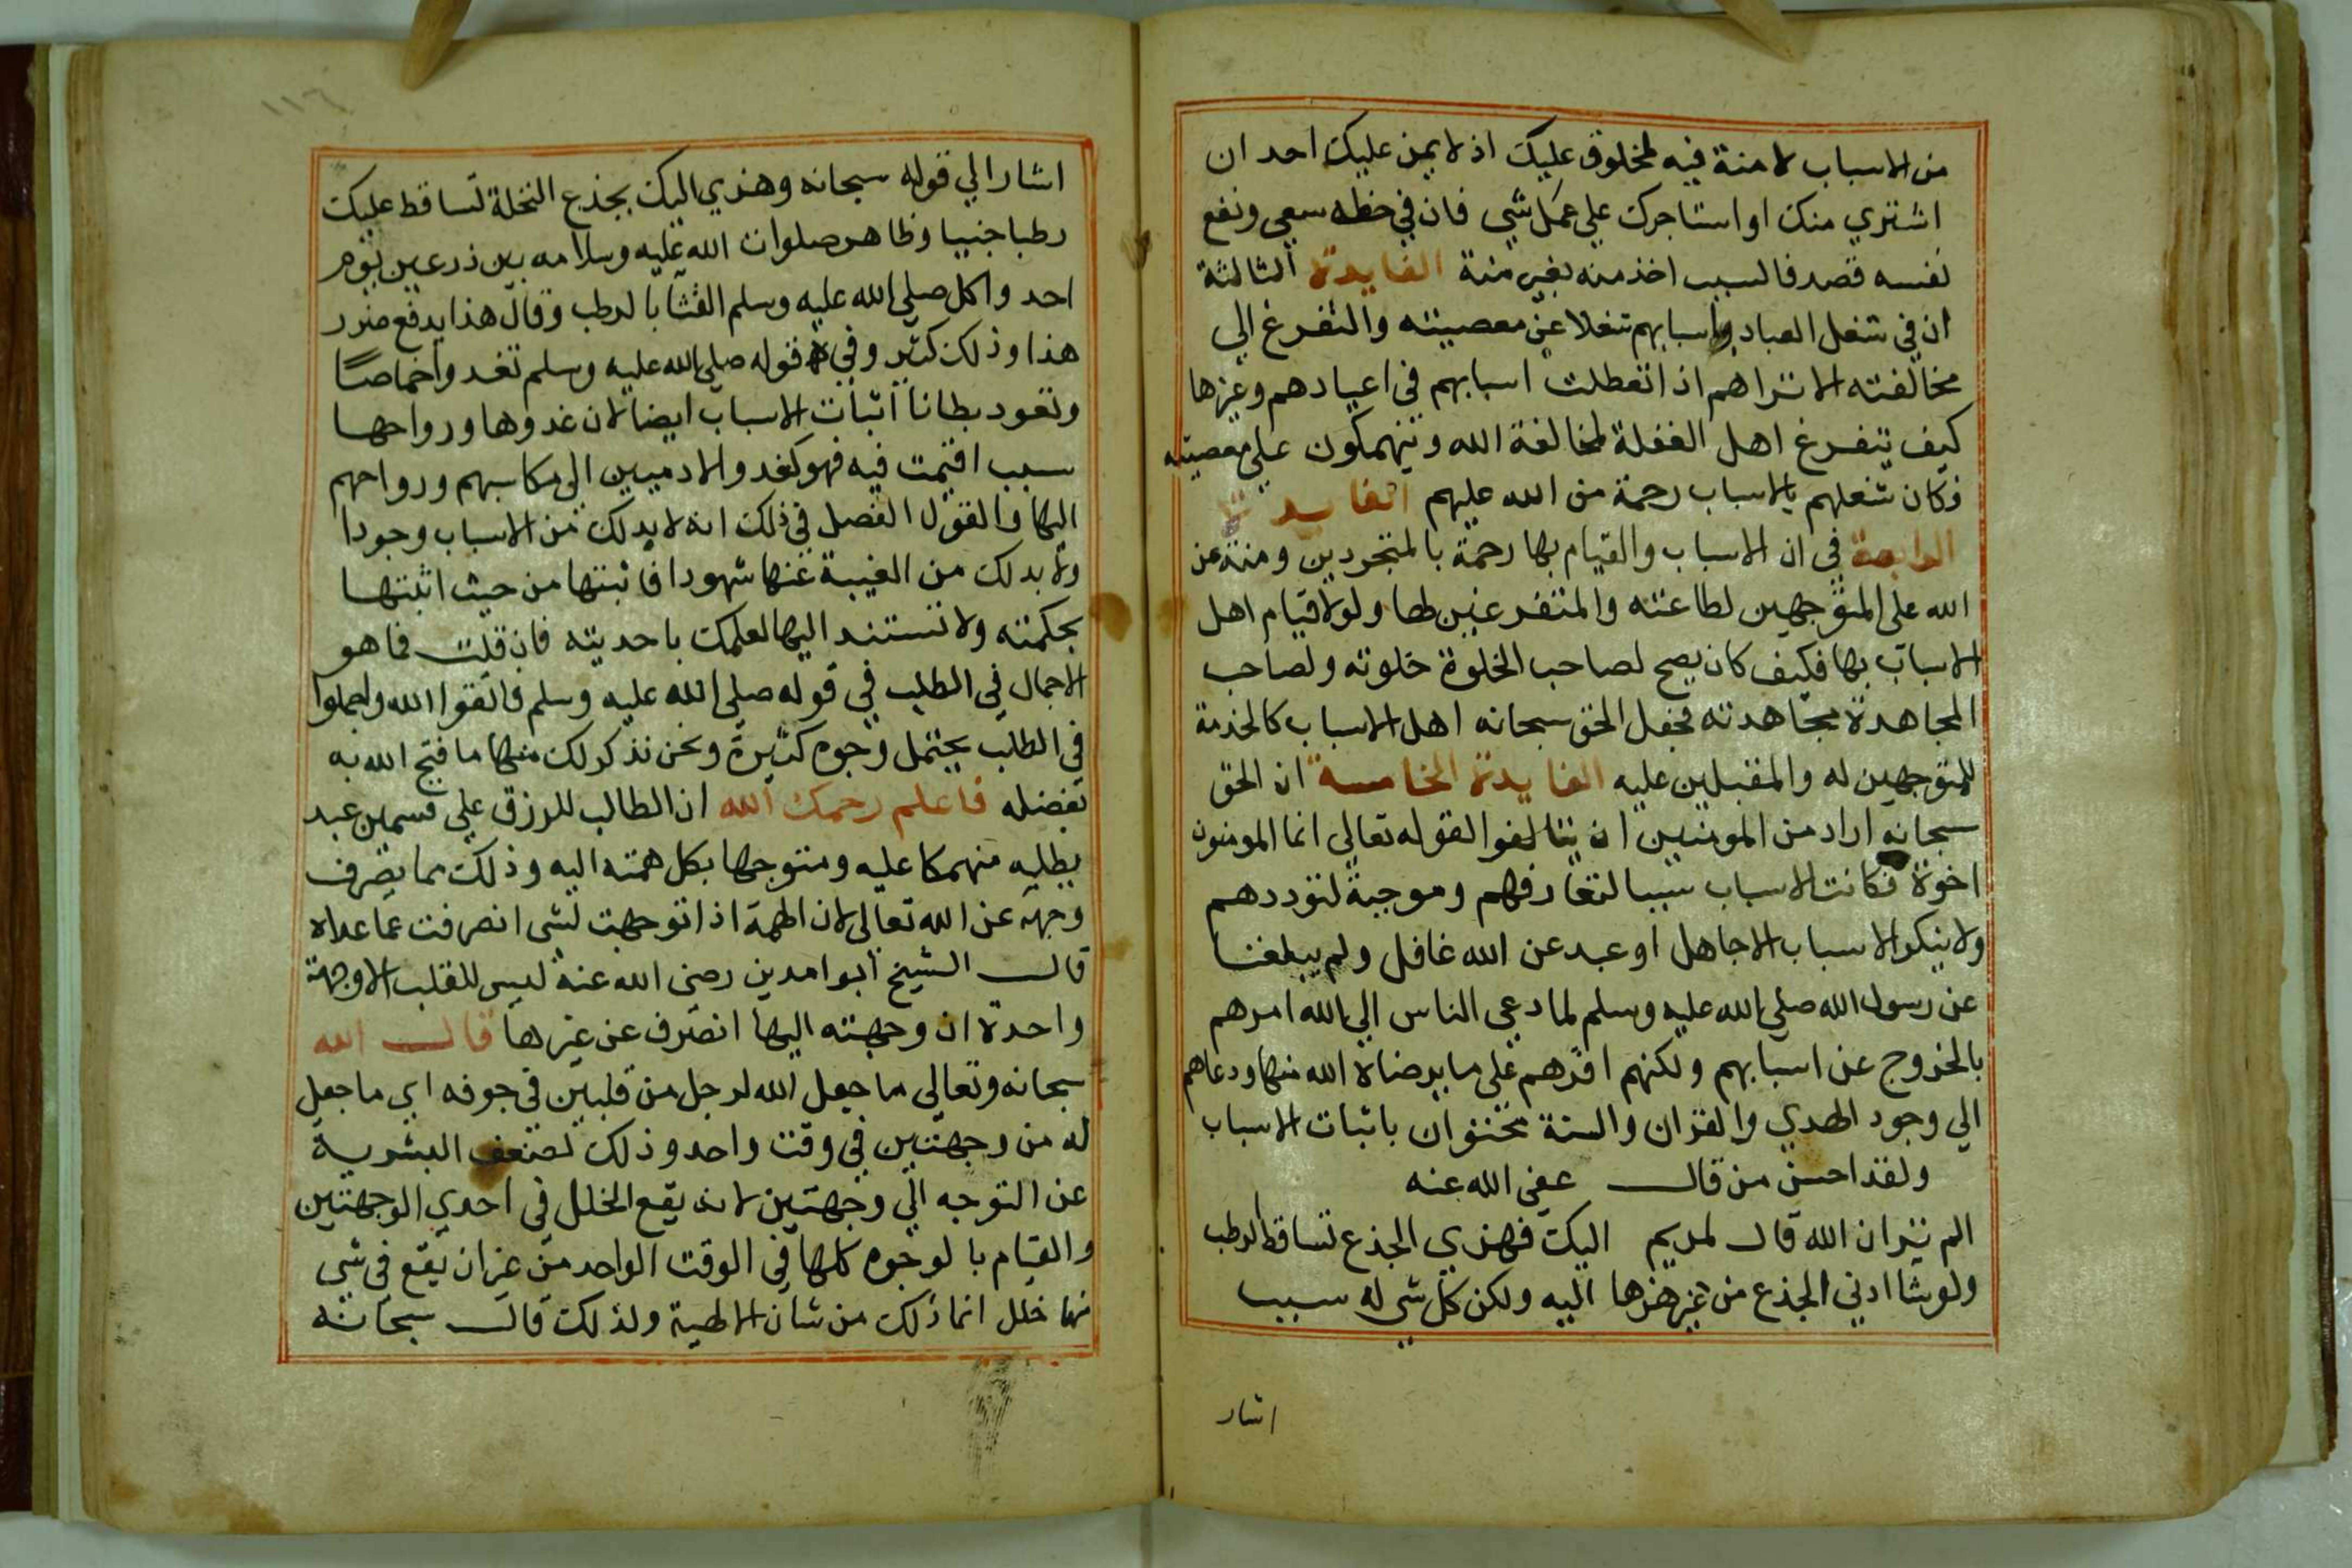 من الاسباب لا منة فيه لمخلوق عليك اذ لا يمن عليك احد ان
اشتري منك او استاجرك علي عمل شي فان في حظه سعي ونفع
نفسه قصد فالسبب اخذ منه بغير منة الفايدة الثالثة
ان في شغل العباد باسبابهم شغلا عن معصيته والتفرغ الي
مخالفته الا تراهم اذا تعطلت اسبابهم في اعيادهم وغيرها
كيف يتفرغ اهل الغفلة لمخالفة الله وينهمكون علي معصيته
فكان شغلهم بالاسباب رحمة من الله عليهم الفايدة
الرابعة في ان الاسباب والقيام بها رحمة بالمتجردين ومنة من
الله على المتوجهين لطاعته والمتفرغين لها ولولا قيام اهل
الاسباب بها فكيف كان يصح لصاحب الخلوة خلوته ولصاحب
المجاهدة مجاهدته فجعل الحق سبحانه اهل الاسباب كالخدمة
للمتوجهين له والمقبلين عليه الفايدة الخامسة ان الحق
سبحانه اراد من المومنين ان يتالفوا لقوله تعالي انما المومنون
اخوة فكانت الاسباب سببا لتعارفهم وموجبة لتوددهم
ولا ينكر الاسباب الا جاهل او عبد عن الله غافل ولم يبلغنا
عن رسول الله صلي الله عليه وسلم لما دعي الناس الي الله امرهم
بالخروج عن اسبابهم ولكنهم اقرهم علي ما يرضاه الله منها ودعاهم
الي وجود الهدي والقران والسنة محشوان باثبات الاسباب
ولقد احسن من قال عفي الله عنه
الم تر ان الله قال لمريم اليك فهزي الجذع تساقط الرطب
ولو شا ادني الجذع من غير هزها اليه ولكن كل شي له سبب
اشار
١١٦
اشار الي قوله سبحانه وهزي اليك بجذع النخلة تساقط عليك
رطبا جنيا وظاهر صلوات الله عليه وسلامه بين درعين يوم
احد واكل صلي الله عليه وسلم القثا بالرطب وقال هذا يدفع ضرر
هذا وذلك كثير وفي قوله صلي الله عليه وسلم تغدوا خماصًا
وتعود بطانا اثبات الاسباب ايضا لان غدوها ورواحها
سبب اقيمت فيه فهو كغدو الادميين الي مكاسبهم ورواحهم
اليها والقول الفصل في ذلك انه لا بد لك من الاسباب وجودا
ولا بد لك من الغيبة عنها شهودا فاثبتها من حيث اثبتها
بحكمته ولا تستند اليها لعلمك باحديته فان قلت فما هو
الاجمال في الطلب في قوله صلي الله عليه وسلم فاتقوا الله واجملوا
في الطلب يحتمل وجوه كثيرة ونحن نذكر لك منها ما فتح الله به
بفضله فاعلم رحمك الله ان الطالب للرزق علي قسمين عبد
يطلبه منهمكا عليه ومتوجها بكل همته اليه وذلك مما يصرف
وجهه عن الله تعالي لان الهمة اذا توجهت لشي انصرفت عما عداه
قال الشيخ ابوا مدين رضي الله عنه ليس للقلب الا وجهة
واحدة ان وجهته اليها انصرف عن غيرها قال الله
سبحانه وتعالي ما جعل الله لرجل من قلبين في جوفه اي ما جعل
له من وجهتين في وقت واحد وذلك لضعف البشرية
عن التوجه الي وجهتين لانه يقع الخلل في احدي الوجهتين
والقيام بالوجوه كلها في الوقت الواحد من غير ان يقع في شي
منها خلل انما ذلك من شان الالهية ولذلك قال سبحانه